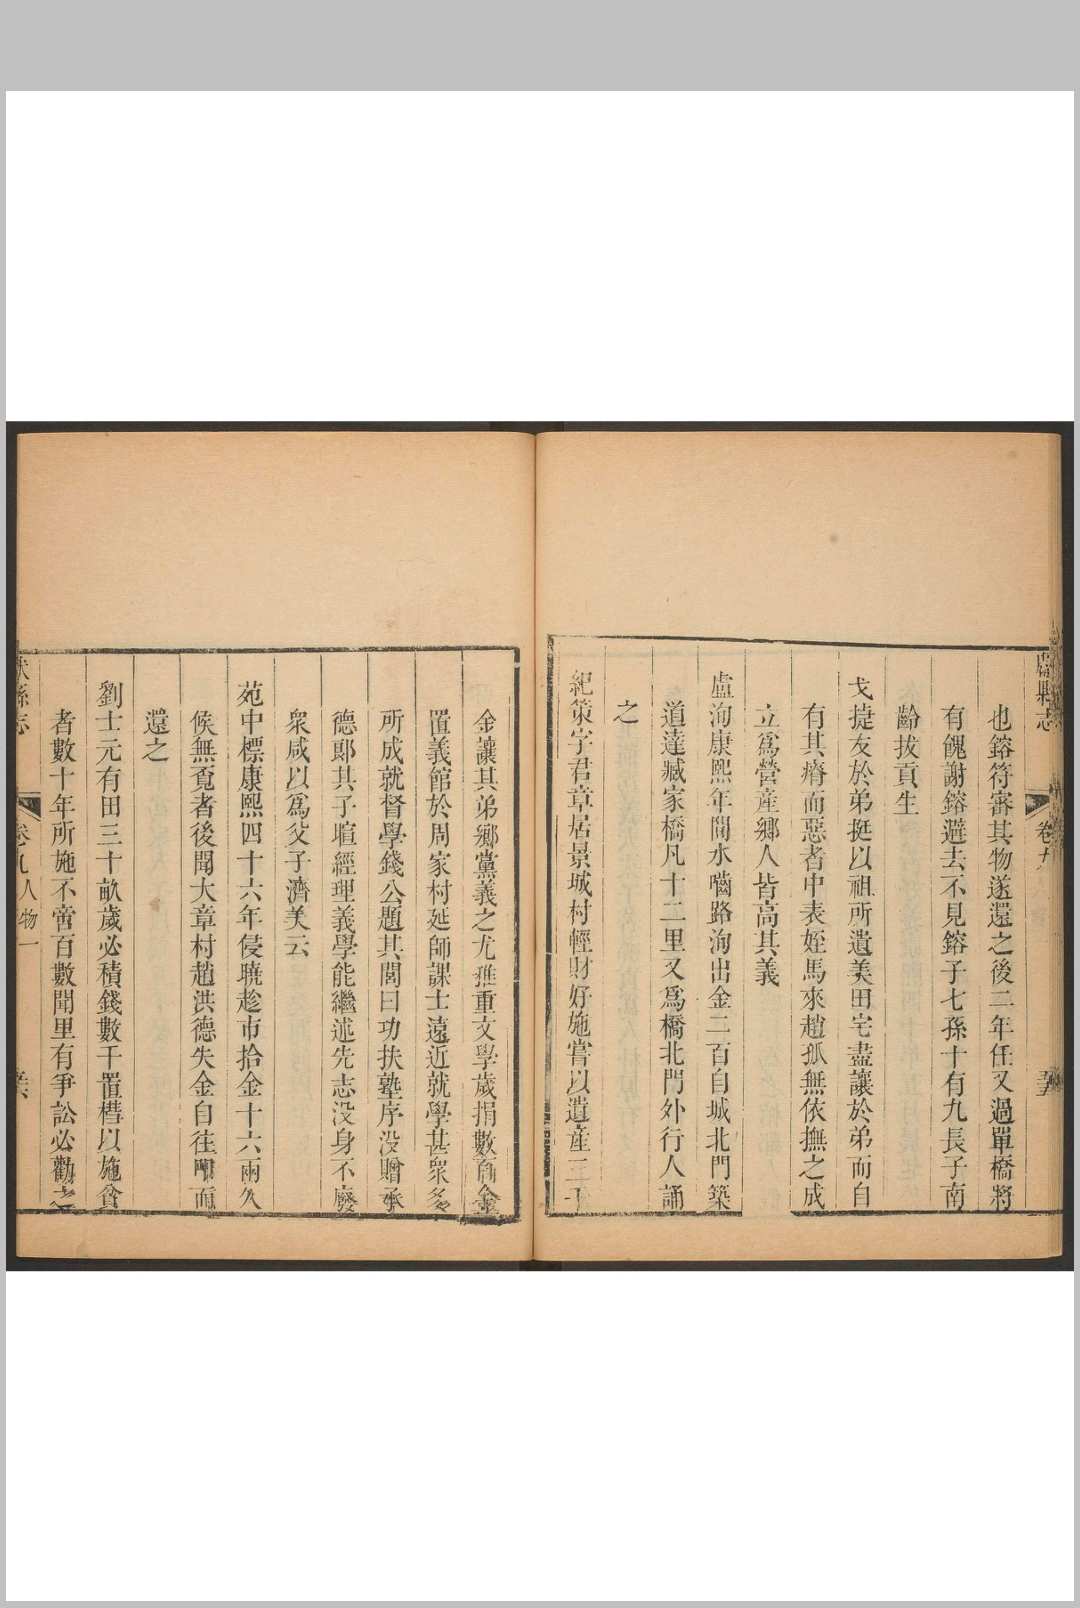 縣志
卷九
也鎔符審其物遂還之後二年任又過單橋將
有餽謝鎔避去不見鎔子七孫十有九長子南
齡拔貢生
戈㨗友於弟挺以祖所遺美田宅盡讓於弟而自
有其瘠而惡者中表姪馬來趙孤無依撫之成
立爲營產鄉人皆高其義
盧洵康熙年間水嚙路洵出金二百自城北門築
道達臧家橋凡十二里又爲橋北門外行人誦
之
紀策字君章居景城村輕財好施嘗以遺產三千
金讓其弟鄉黨義之尤推重文學歲捐數百金
置義館於周家村延師課士遠近就學甚衆多
所成就督學錢公題其閭曰功扶塾序没贈承
德郎其子暄經理義學能繼述先志没身不廢
衆咸以爲父子濟美云
苑中標康熙四十六年侵曉趁市拾金十六兩久
候無覔者後聞大章村趙洪德失金自往叩而
還之
劉士元有田三十畝歲必積錢數千置槥以施貧
者數十年所施不啻百數閭里有爭訟必勸之
縣志
卷九人物一